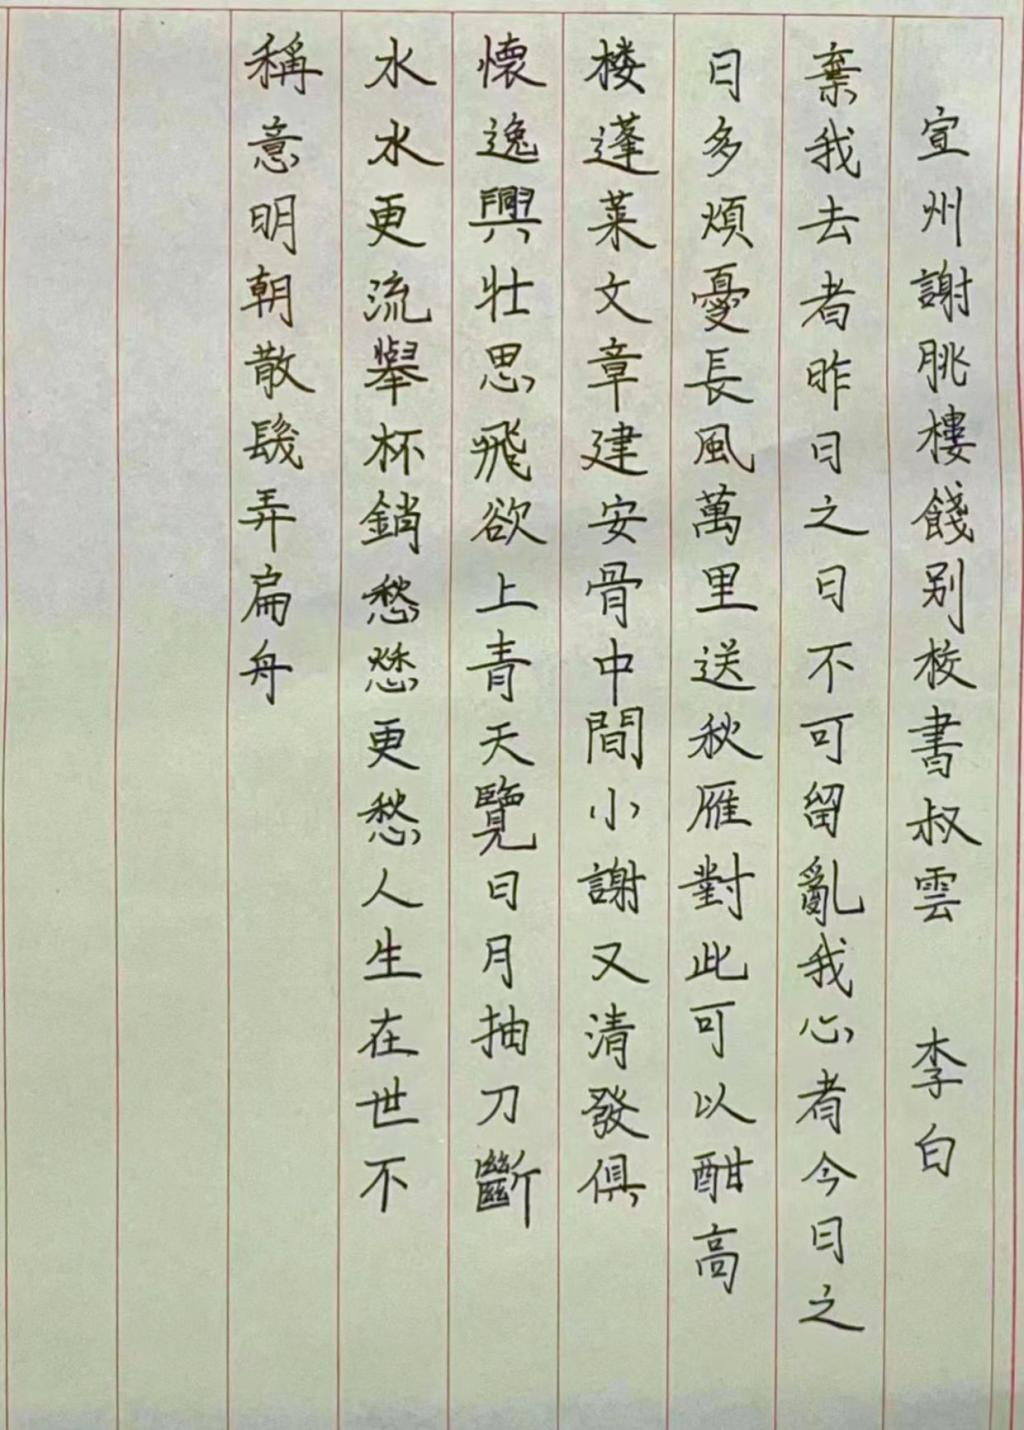 宣州謝朓樓餞别校書叔雲 李白
棄我去者昨日之日不可留亂我心者今日之
日多煩憂長風萬里送秋雁對此可以酣高
楼蓬莱文章建安骨中間小謝又清發俱
懷逸興壯思飛欲上青天覽日月抽刀斷
水水更流舉杯銷愁愁更愁人生在世不
稱意明朝散髮弄扁舟